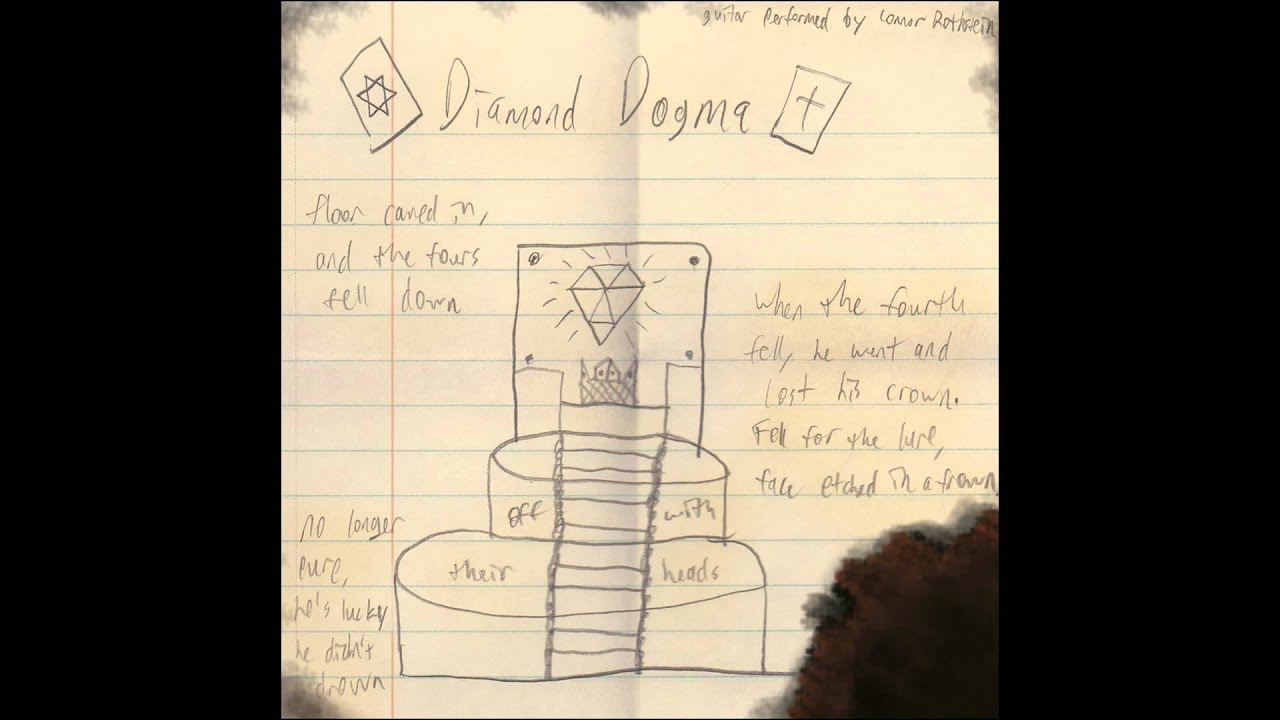 guitar performed by Conor Rothstein
Diamond Dogma
floor caved in,
and the fours
fell down
when the fourth
fell, he went and
lost his crown.
Fell for the lure,
face etched in a frown
off with
their heads
no longer
pure,
he's lucky
he didn't
drown